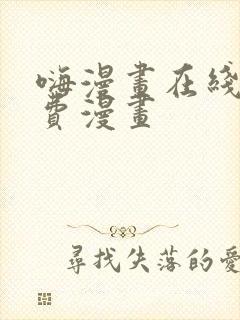 嗨漫畫在綫
費漫畫
尋找失落的愛